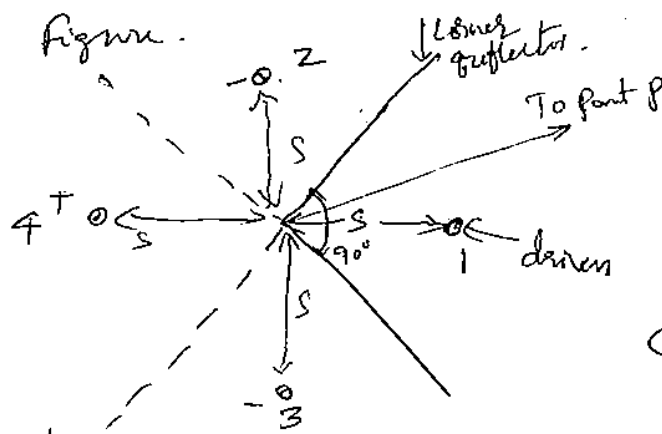 Figure.
Corner
reflector.
- 2
To point P
S
4 +
S
S
90°
driven
1
S
(
- 3